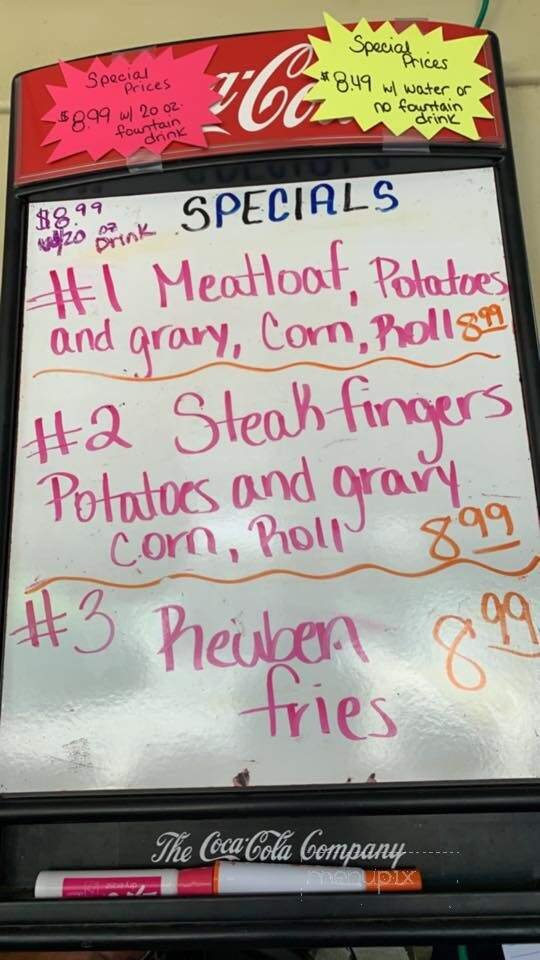 Special
Prices
$8.99 w/ 20 oz.
fountain
drink
Special
Prices
$8.49 w/ water or
no fountain
drink
a-Co
$8.99
w/20 oz
Drink
SPECIALS
#1 Meatloaf, Potatoes
and gravy, Corn, Roll 8.99
#2 Steakfingers
Potatoes and gravy
Corn, Roll 8.99
#3 Reuben 8.99
fries
The Coca-Cola Company
menupix